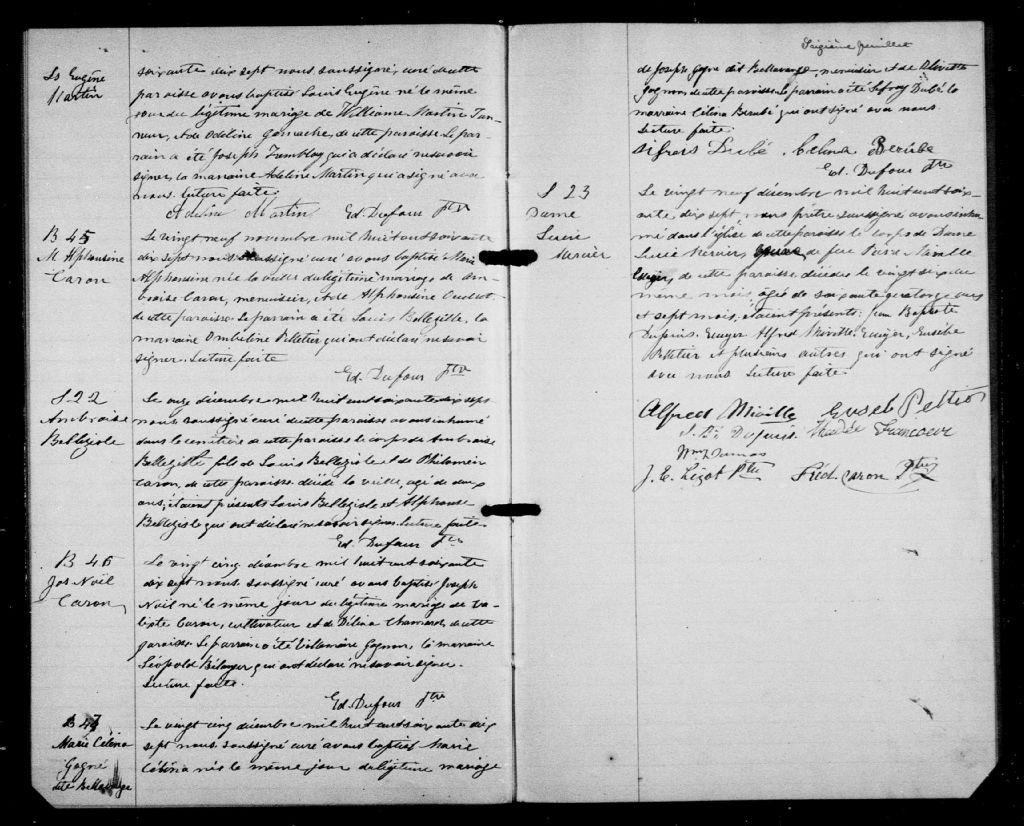 Ls Eugène
Martin
soixante dix sept nous soussigné, curé de cette
paroisse avons baptisé Louis Eugène né le même
jour du légitime mariage de William Martin Tan-
neur, et de Adeline Gamache, de cette paroisse. Le par-
rain a été Joseph Tremblay qui a déclaré ne savoir
signer, la marraine Adeline Martin qui a signé avec
nous. Lecture faite.
Adeline Martin Ed. Dufour Ptre
B 45
M Alphonsine
Caron
Le vingt neuf novembre mil huit cent soixante
dix sept nous soussigné curé avons baptisé Marie
Alphonsine née la veille du légitime mariage de Am-
broise Caron, menuisier, et de Alphonsine Ouellet
de cette paroisse. Le parrain a été Louis Bellegiste, la
marraine Ombeline Pelletier qui ont déclaré ne savoir
signer. Lecture faite
Ed. Dufour Ptre
S 22
Ambroise
Bellegiste
Le onze décembre mil huit cent soixante dix sept
nous soussigné curé de cette paroisse avons inhumé
dans le cimetière de cette paroisse le corps de Ambroise
Bellegiste fils de Louis Bellegiste et de Philomène
Caron, de cette paroisse décédé la veille, agé de deux
ans; étaient présents Louis Bellegiste et Alphonse
Bellegiste qui ont déclaré ne savoir signer. Lecture faite.
Ed. Dufour Ptre
B 46
Jos Noël
Caron
Le vingt cinq décembre mil huit cent soixante
dix sept nous soussigné curé avons baptisé Joseph
Noël né le même jour du légitime mariage de
Caron, cultivateur et de Délina Chouinard, de cette
paroisse. Le parrain a été Gagnon, la marraine
Léopold Bélanger qui ont déclaré ne savoir signer.
Lecture faite.
Ed. Dufour Ptre
B 47
Marie Célina
Gagné
dite Bellavange
Le vingt cinq décembre mil huit cent soixante dix
sept nous soussigné curé avons baptisé Marie
Célina née le même jour du légitime mariage
Seizième feuillet
de Joseph Gagné dit Bellavance, menuisier et de
Gagnon de cette paroisse. Le parrain a été Dubé la
marraine Célina Berubé qui ont signé avec nous.
Lecture faite
Sifrois Dubé. Celina Berube
Ed. Dufour Ptre
S 23
Dame
Lucie
Mercier
Le vingt neuf décembre mil huit cent soix-
ante dix sept nous prêtre soussigné avons inhu-
mé dans l'église de cette paroisse le corps de Dame
Lucie Mercier, épouse de feu Miville
Ecuyer, de cette paroisse, décédée le vingt six du
même mois, agée de soixante quatorze ans
et sept mois, étaient présents: Jean Baptiste
Dupuis, Ecuyer Alfred Miville Ecuyer, Eusèbe
Pelletier et plusieurs autres qui ont signé
avec nous Lecture faite.
Alfred Miville Euseb Peltier
J. Bt Dupuis Francoeur
Wm Dumas
J. E. Ptre Fréd. Caron Ptre